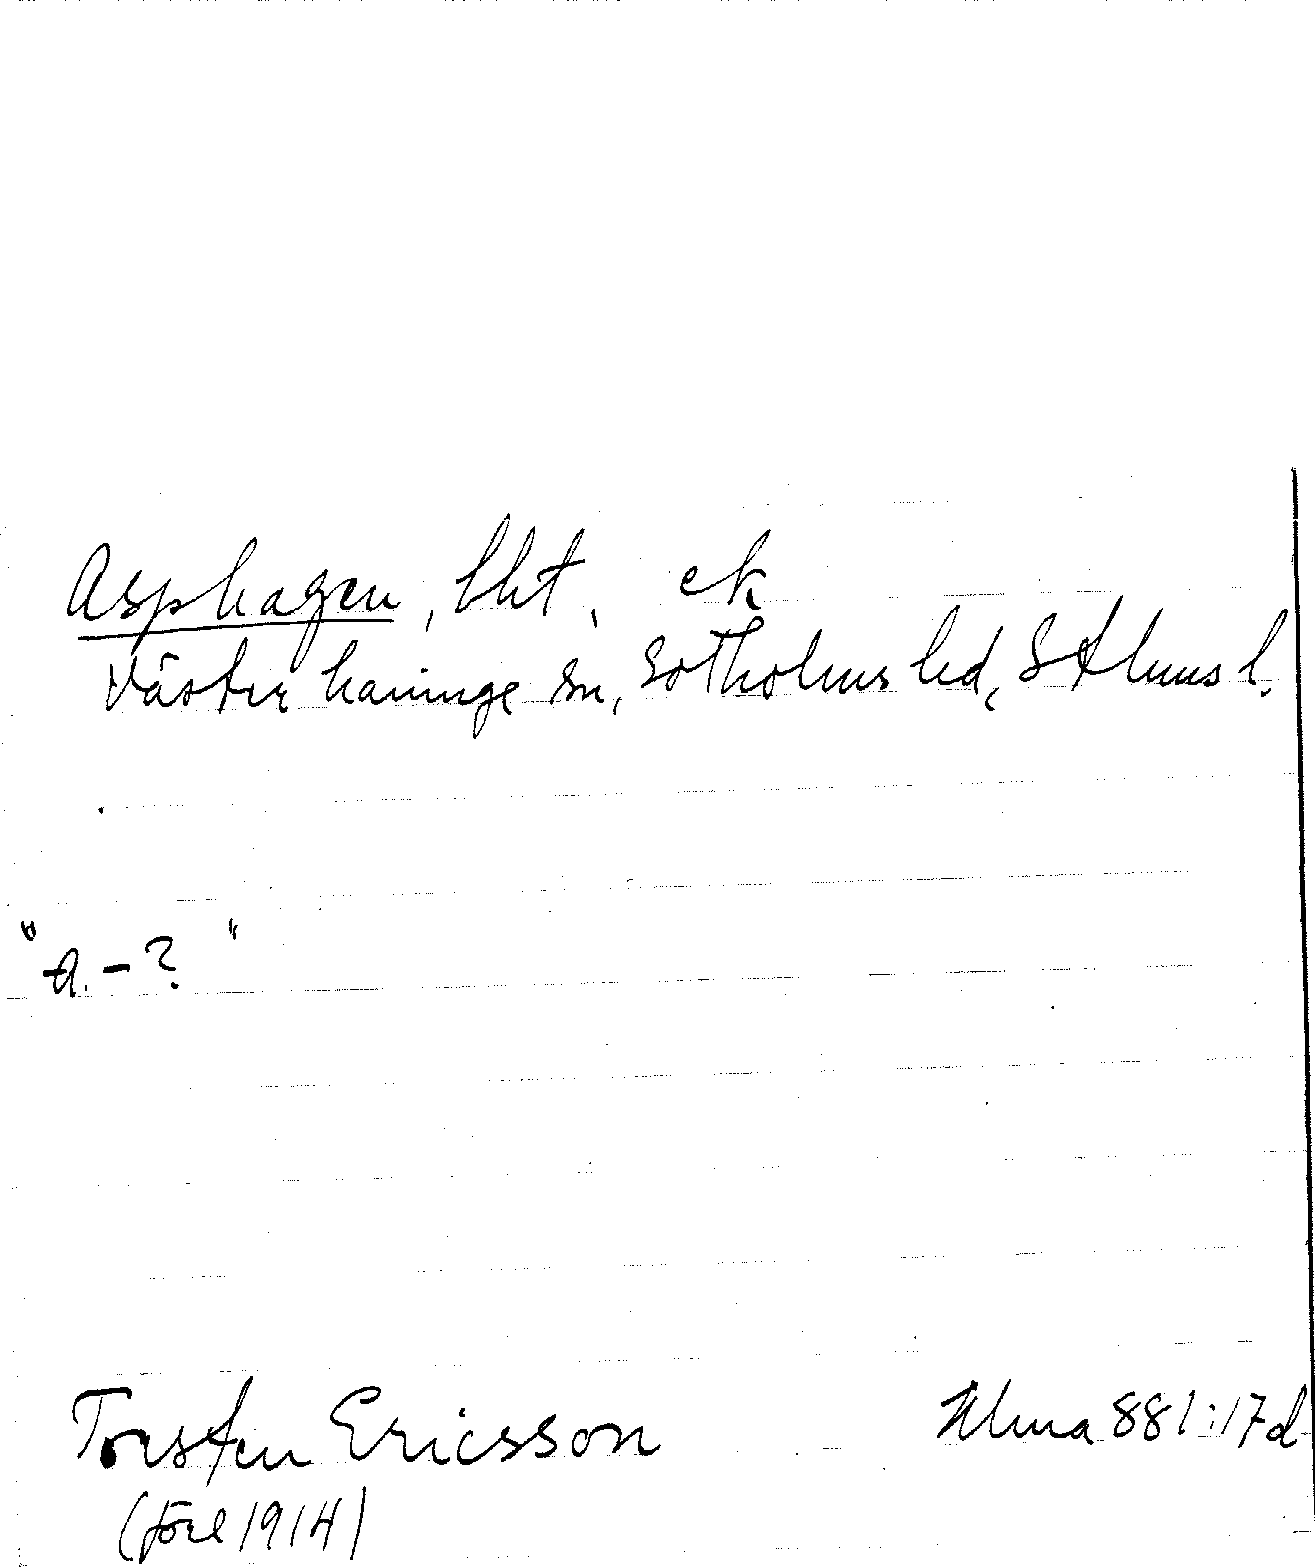 Asphagen, lht, ek
Västerhaninge sn, Sotholms hd, Sthlms l.
"A. - ?"
Torsten Ericsson
(före 1914)
Ulma 881:17d